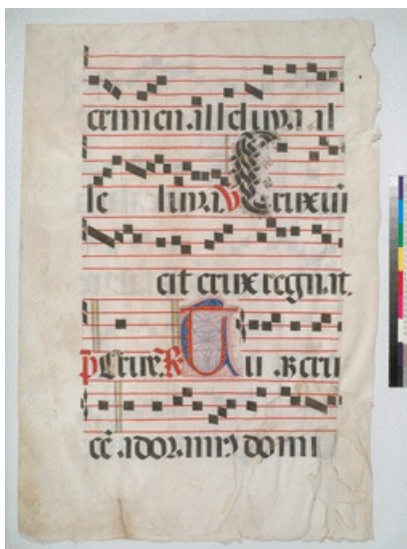 crimen. alleluya. al
le luya. V Crux ui
cit crux regnat.
p Crux. R Tuam cru
cē adoramꝰ domi